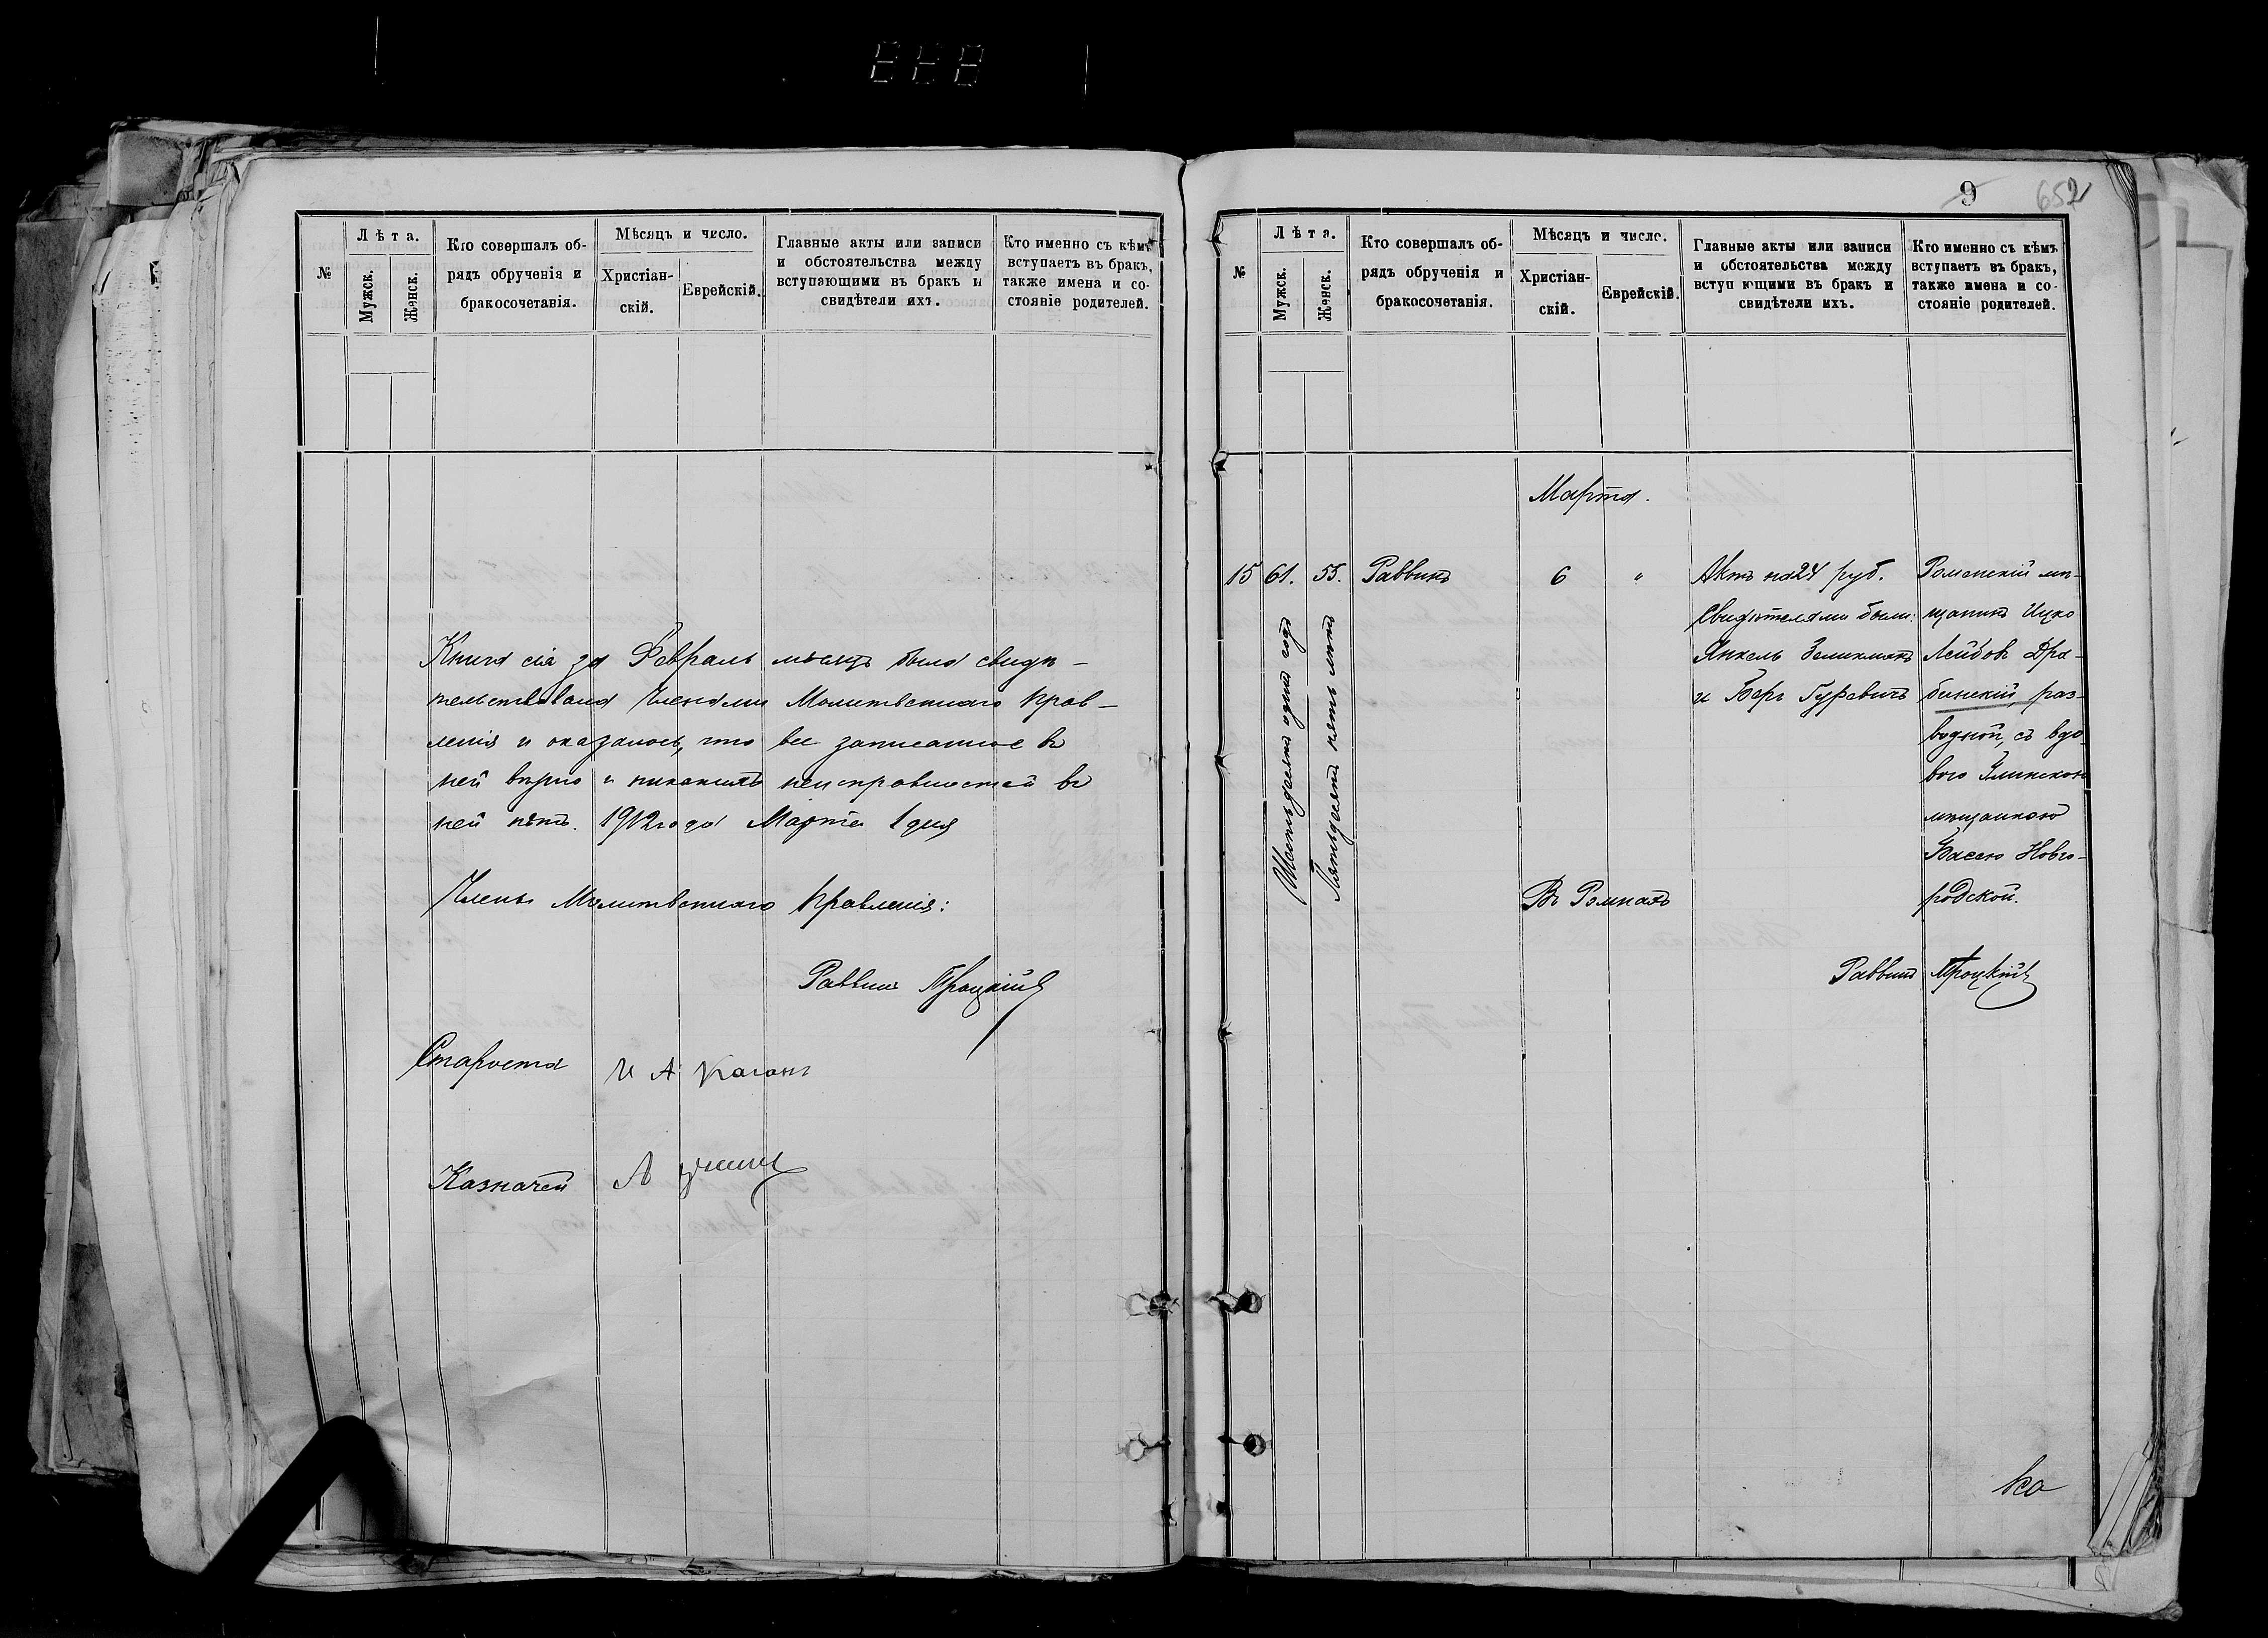 №
Лѣта.
Мужск.
Женск.
Кто совершалъ об-
рядъ обрученія и
бракосочетанія.
Мѣсяцъ и число.
Христіан-
скій.
Еврейскій.
Главные акты или записи
и обстоятельства между
вступающими въ бракъ и
свидѣтели ихъ.
Кто именно съ кѣмъ
вступаетъ въ бракъ,
также имена и со-
стояніе родителей.
Книга сія за Февраль мѣсяцъ была свидѣ-
тельствована Членами Молитвеннаго Прав-
ленія и оказалось, что все записанное въ
ней вѣрно и никакихъ неисправностей въ
ней нѣтъ. 1912 года Марта 1 дня
Члены Молитвеннаго Правленія:
Раввинъ Троцкій
Староста И А Каганъ
Казначей А
9
652
№
Лѣта.
Мужск.
Женск.
Кто совершалъ об-
рядъ обрученія и
бракосочетанія.
Мѣсяцъ и число.
Христіан-
скій.
Еврейскій.
Главные акты или записи
и обстоятельства между
вступ ющими въ бракъ и
свидѣтели ихъ.
Кто именно съ кѣмъ
вступаетъ въ бракъ,
также имена и со-
стояніе родителей.
Марта.
15
61.
Шестьдесятъ одинъ годъ
55.
Пятьдесятъ пять лѣтъ
Раввинъ
6
"
Въ Ромнахъ
Актъ на 24 руб.
Свидѣтелями были:
Янкель Зеликманъ
и Беръ Гуревичъ
Роменскій мѣ-
щанинъ Ицко
Лейбовъ Дра-
бинскій, раз-
водной, съ вдо-
вою Глинскою
мѣщанкою
Басею Новго-
родской.
Раввинъ Троцкій
ко